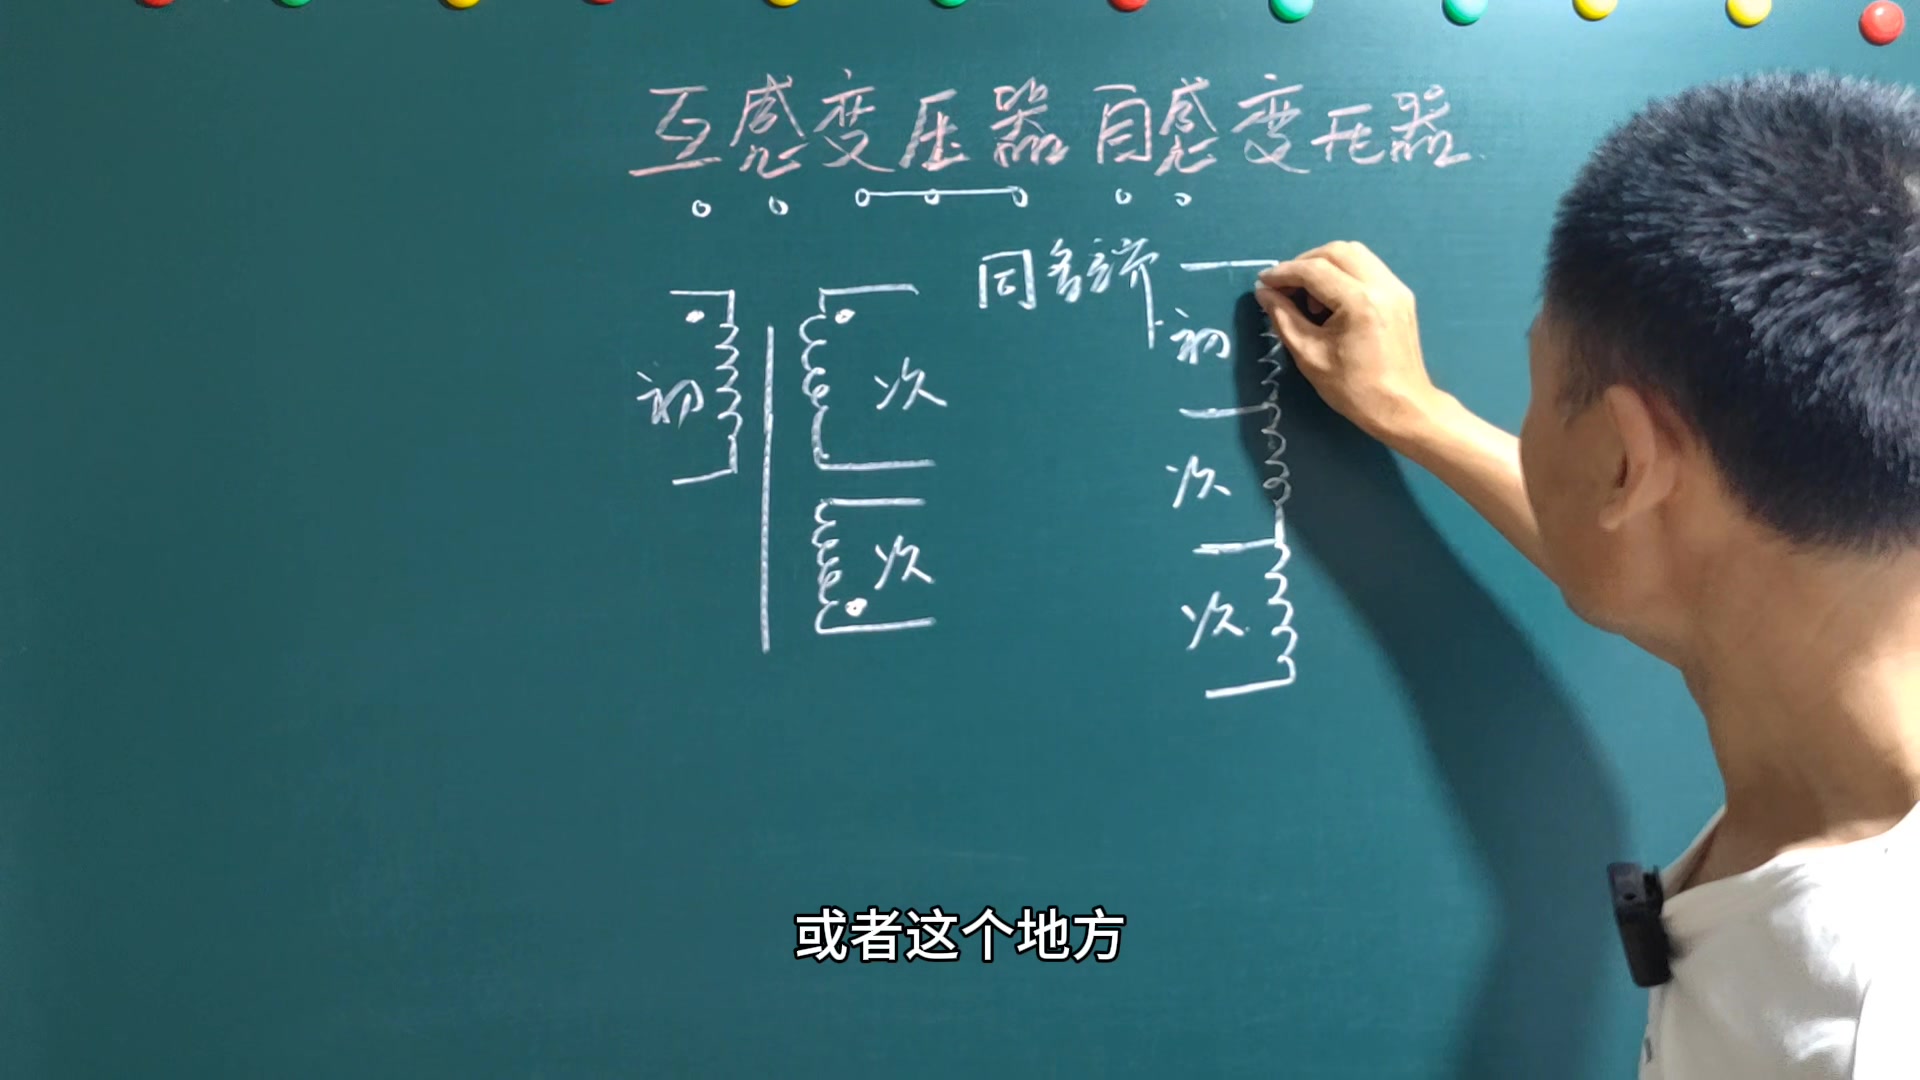 互感变压器 自感变压器
同名端
初
次
次
初
次
次
或者这个地方